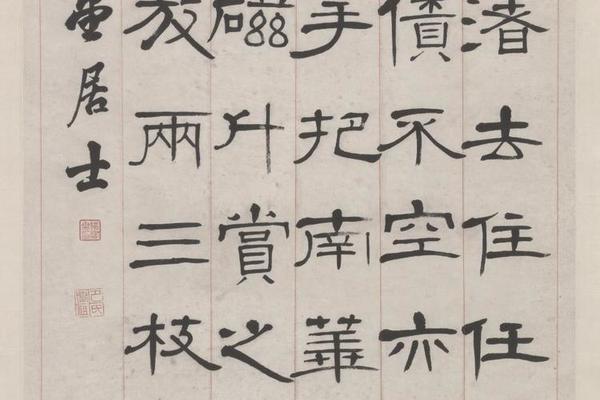 渚去住任
債不空亦
手把南華
磁斗賞之
放兩三枝
居士